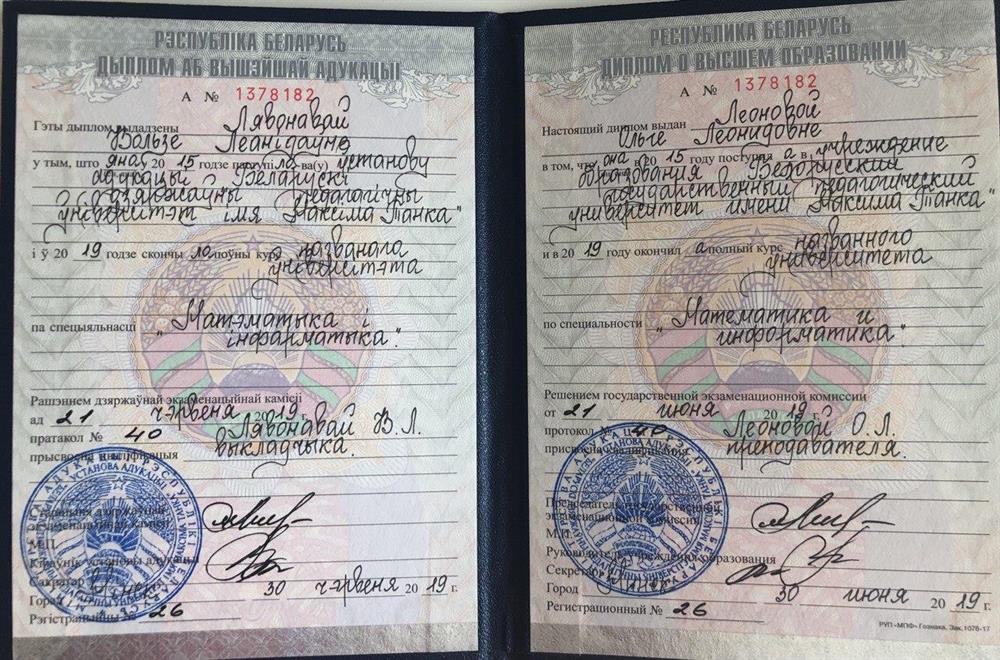 РЭСПУБЛІКА БЕЛАРУСЬ
ДЫПЛОМ АБ ВЫШЭЙШАЙ АДУКАЦЫІ
А № 1378182
Гэты дыплом выдадзены Лявонавай
Вользе Леанідаўне
у тым, што яна ў 20 15 годзе паступіла ва(у) установу
адукацыі "Беларускі
дзяржаўны педагагічны
ўніверсітэт імя Максіма Танка"
і ў 20 19 годзе скончыла поўны курс названага
ўніверсітэта
па спецыяльнасці "Матэматыка і
інфарматыка".
Рашэннем дзяржаўнай экзаменацыйнай камісіі
ад 21 чэрвеня 20 19 г.
пратакол № 40 Лявонавай В.Л.
прысвоена кваліфікацыя выкладчыка.
Старшыня дзяржаўнай
экзаменацыйнай камісіі
М.П.
Кіраўнік установы адукацыі
Сакратар
Горад 30 чэрвеня 20 19 г.
Рэгістрацыйны № 26
РЕСПУБЛИКА БЕЛАРУСЬ
ДИПЛОМ О ВЫСШЕМ ОБРАЗОВАНИИ
А № 1378182
Настоящий диплом выдан Леоновой
Ольге Леонидовне
в том, что она в 20 15 году поступила в учреждение
образования "Белорусский
государственный педагогический
университет имени Максима Танка"
и в 20 19 году окончила полный курс названного
университета
по специальности "Математика и
информатика".
Решением государственной экзаменационной комиссии
от 21 июня 20 19 г.
протокол № 40 Леоновой О.Л.
присвоена квалификация преподавателя.
Председатель государственной
экзаменационной комиссии
М.П.
Руководитель учреждения образования
Секретарь
Город 30 июня 20 19 г.
Регистрационный № 26
РУП «МПФ» Гознака. Зак.1076-17